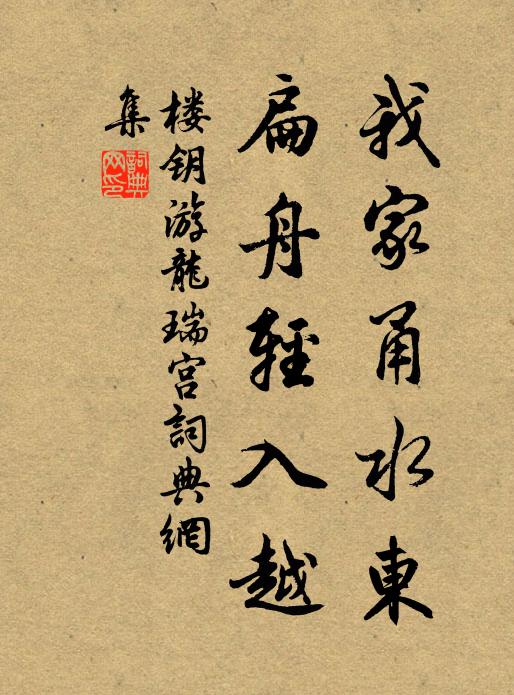 我家甬水東
扁舟輕入越
楼钥游龍瑞宫詞典網
集
詞典
网印